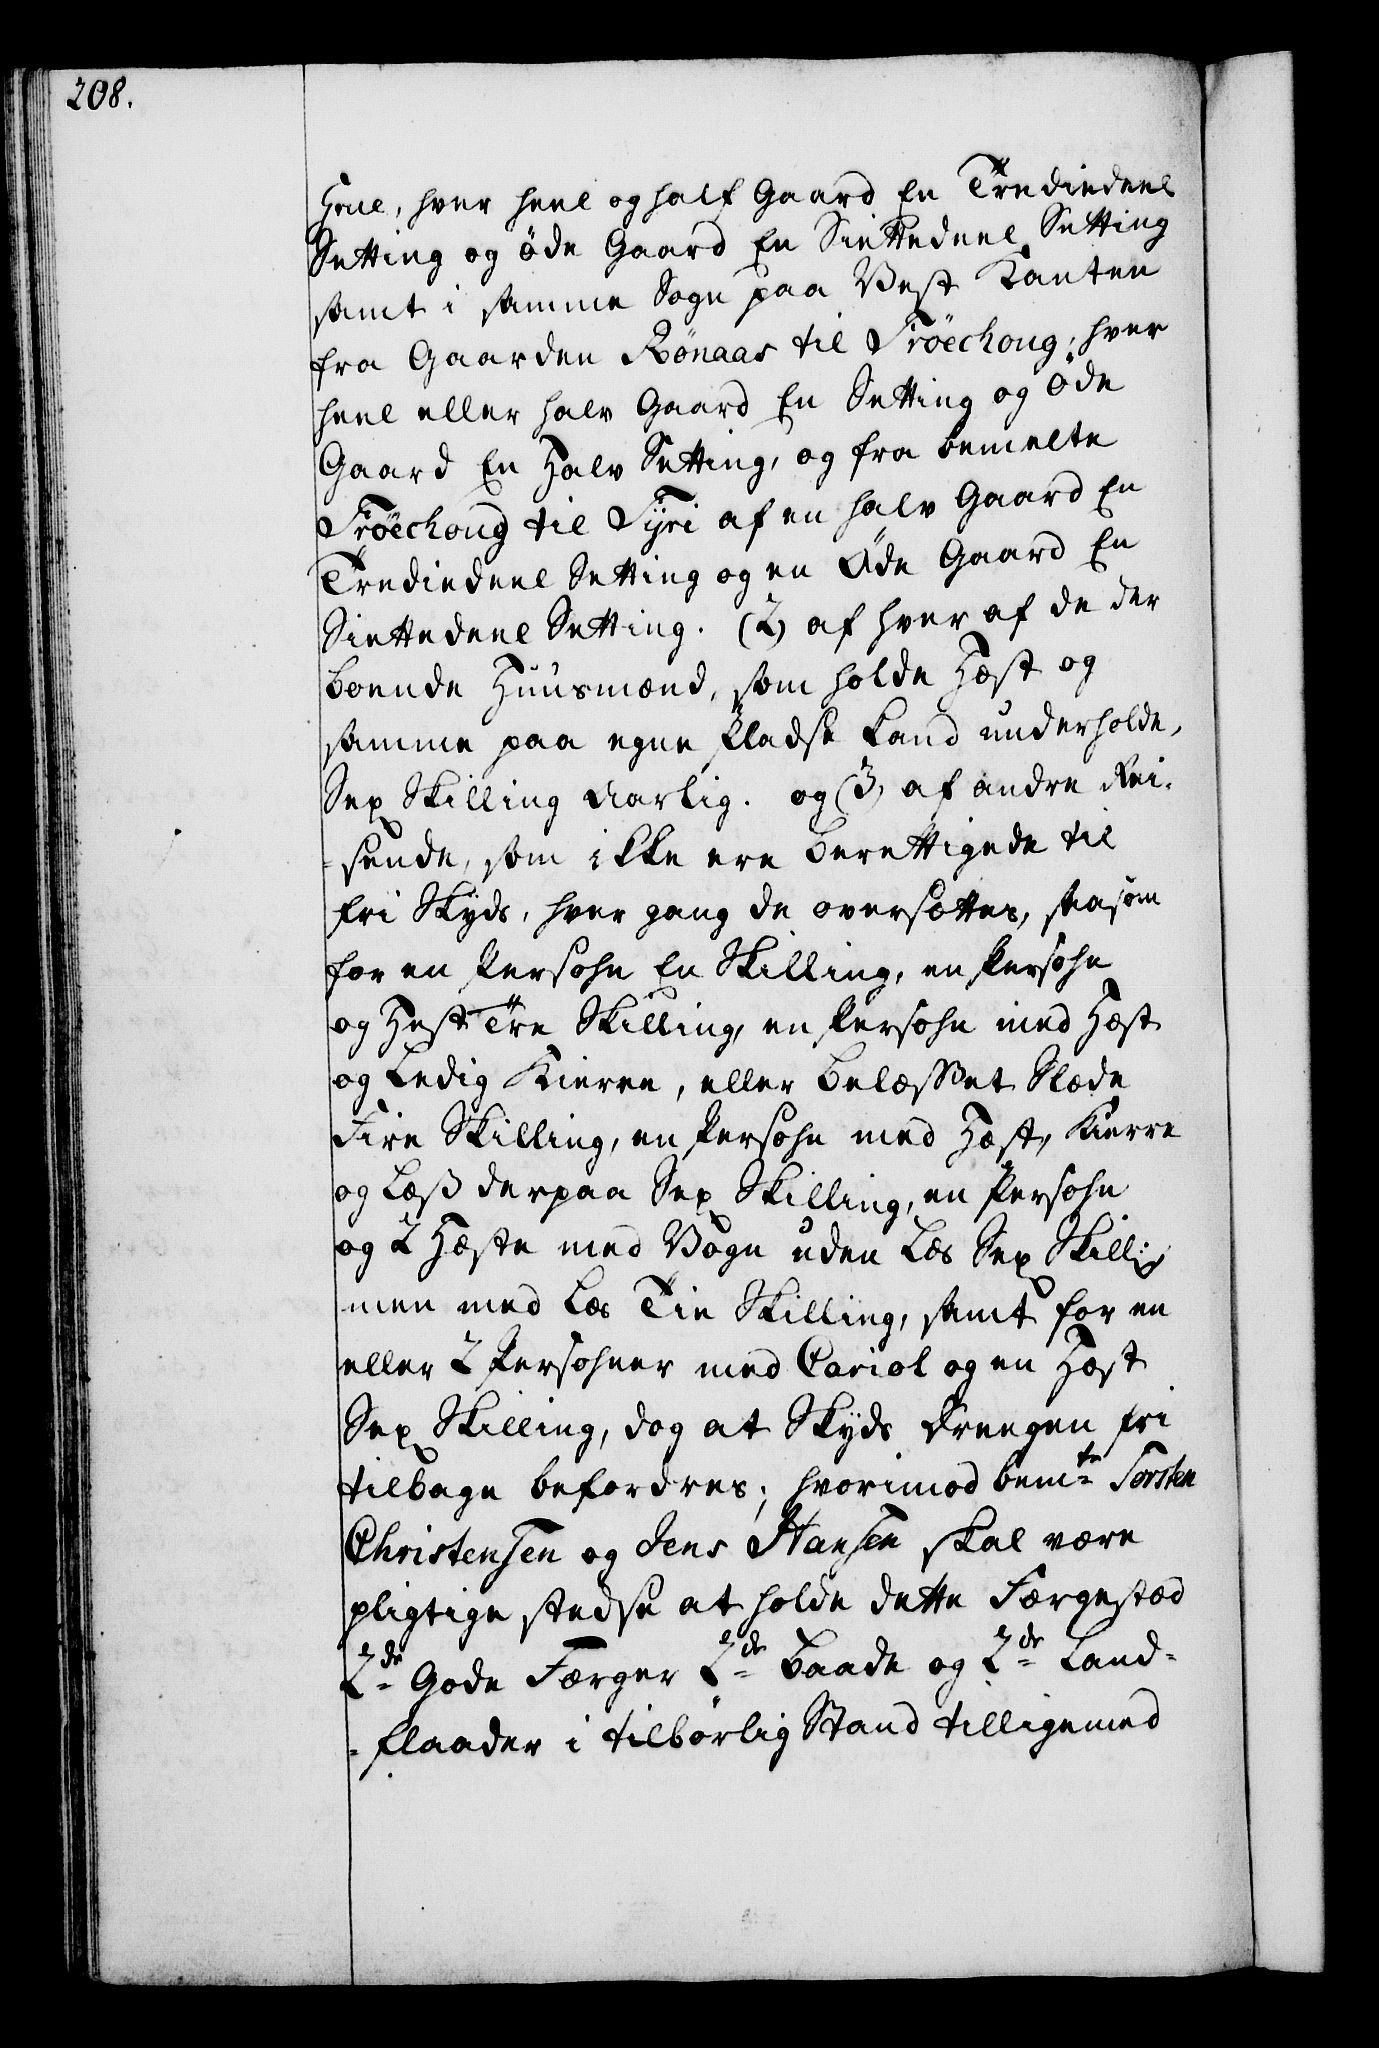 208.
Houl, hver heel og half Gaard En Trediedeel
Setting og öde Gaard En Siettedeel Setting
samt i samme Sogn paa Vest Kanten
fra Gaarden Rönaas til Tröechoug, hver
heel eller halv Gaard En Setting og öde
Gaard En Halv Setting, og fra bemelte
Tröechoug til Tÿri af en halv Gaard En
Trediedeel Setting og en Öde Gaard En
Siettedeel Setting. (2) af hver af de der
boende Huusmænd, som holde Hæst og
samme paa egne Pladse kand underholde,
Sex Skilling aarlig. og (3) af andre Rei-
-sende, som ikke ere berettigede til
fri Skÿds, hver gang de oversættes, saasom
for en Persohn En Skilling, en Persohn
og Hest Tre Skilling, en Persohn med Hæst
og Ledig Kierre, eller belæsset Slæde
Fire Skilling, en Persohn med Hæst, Kierre
og Læß derpaa Sex Skilling, en Persohn
og 2 Hæste med Vogn uden Læs Sex Skill:
men med Læs Tie Skilling, samt for en
eller 2 Persohner med Cariol og en Hæst
Sex Skilling, dog at Skÿds drengen fri
tilbage befordres; hvorimod bemte Torsten
Christensen og Jens Hansen skal være
pligtige stedse at holde dette Færgestæd
2de Gode Færger 2de Baade og 2de Land-
-flaader i tilbörlig Stand tilligemed